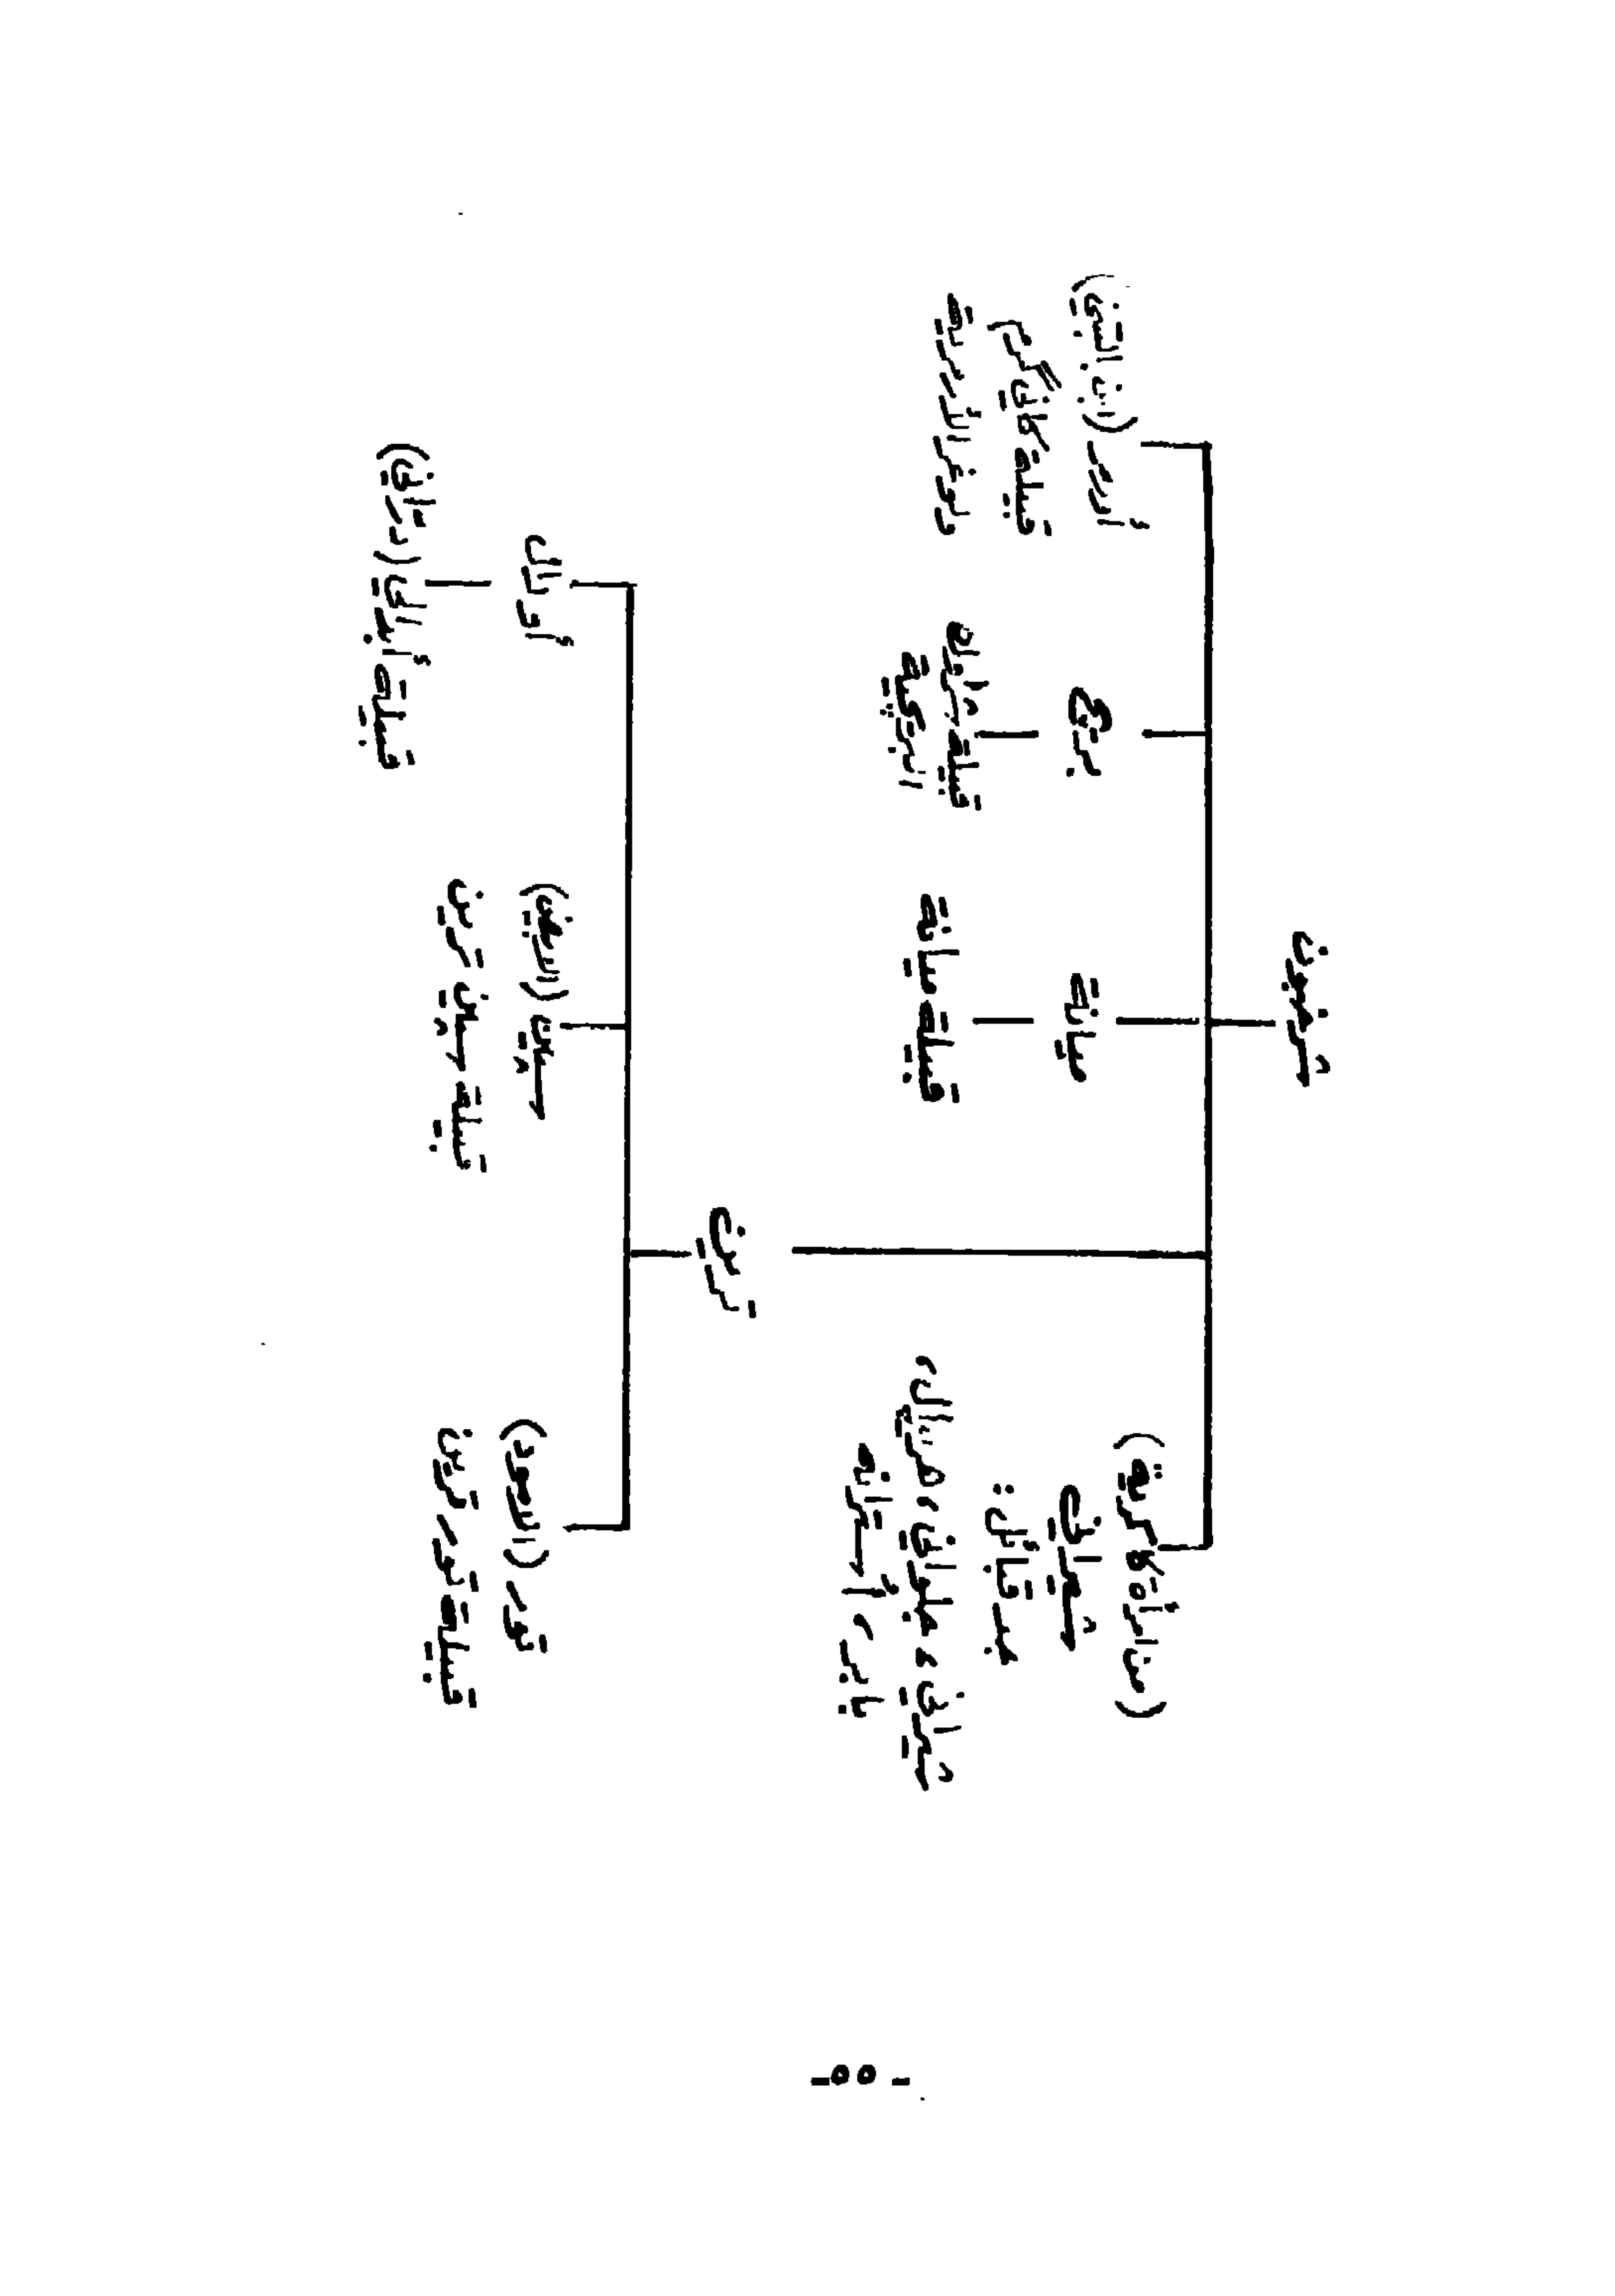 (من امرأة كاكرية)
شيراني
جد قبائل:
شيراني ، جلواني ، هريپال ،
بابر ، أسترانه
ميانة
قبيلة ميانة
بريج
قبيلة
أرمر (ابن بالتبني)
قبيلة كاني گرم
ولوغر الأرمرية
ترين
تور (الاسود)
قبيلة تور ترين
سپين (الابيض)
قبيلة سپين ترين
أودال
قبيلة أبدالي (دراني)
- ٥٥ -